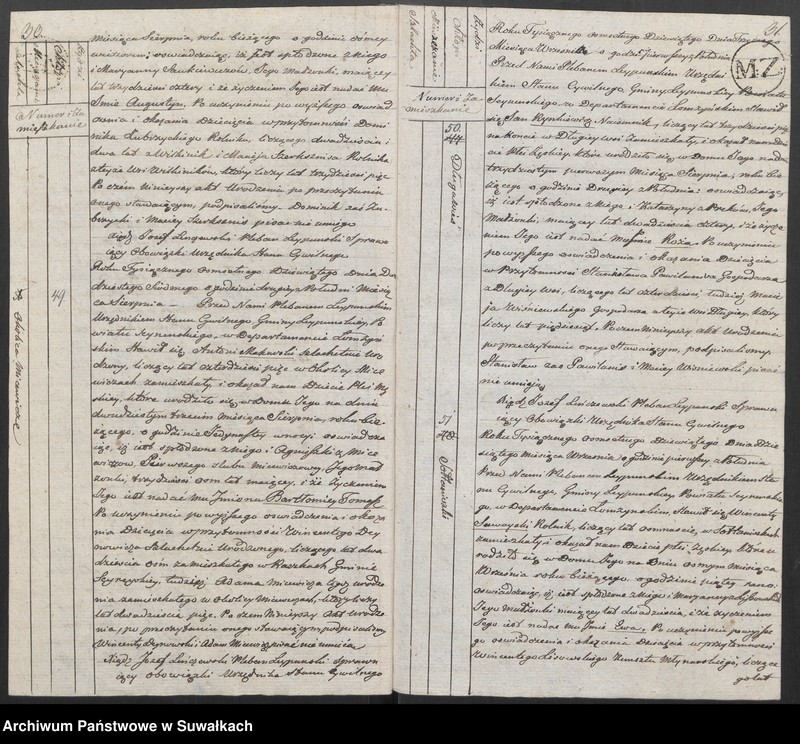 30.
Numer i Za
mieszkanie
miesiąca Sierpnia, roku bieżącego o godzinie ósmey
wieczorem; oswiadczaiąc, iż jest spłodzone z Niego
i Maryanny Jego Małżonki, maiącey
lat trzydzieści cztery i że życzeniem Jego iest nadać mu
Imie Augustyn, Po uczynieniu powyższego oswiad
czenia i okazania Dziecięcia w przytomności Domi
nika Zubrzyckiego Rolnika, liczącego dwadzieścia i
dwa lat z i Macieja Rolnika
z teyże Wsi który liczy lat trzydzieści pięć
Po czem Ninieyszy akt Urodzenia po przeczytaniu
onego stawaiącym, podpisaliśmy. Dominik zaś Zu
brzycki i Maciey pisać nie umieią
Xiądz Jozef Pleban Leypunski Sprawu
iący Obowiązki Urzędnika Stanu Cywilnego
49
Okolica Micewicze
Roku Tysiącznego osmsetnego Dziewiątego Dnia Dwu
dziestego Siodmego o godzinie drugiey z Południa Miesią
ca Sierpnia — Przed Nami Plebanem Leypunskim
Urzędnikiem Stanu Cywilnego Gminy Leypunskiey, Po
wiatu Seynenskiego, w Departamencie Łomżyń
skim Stawił się Antoni Makowski Szlachetnie Uro
dzony, liczący lat czterdzieści pięć w Okolicy Mice
wiczach zamieszkały i okazał nam Dziecie Płci Mę
skiey, które urodziło się w Domu Jego na dniu
dwudziestym trzecim miesiąca Sierpnia, roku bie
żącego, o godzinie Jedynastey w nocy: oswiadcza
iąc, iż iest spłodzone z Niego i Agnieszki z Mice
wiczow, Pierwszego slubu Micewiczowey, Jego Mał
żonki, trzydzieści osm lat maiącey, i że życzeniem
Jego iest nadać mu Imiona Bartłomiey Tomasz
Po uczynieniu powyższego oswiadczenia i okaza
nia Dziecięcia w przytomności Wincentego Dey
nowicza Szlachetnie Urodzonego, liczącego lat dwa
dzieścia osm zamieszkałego w Raczkach Gminie
Seyrejskiey, tudzież Adama Micewicza tegoż urodze
nia zamieszkałego w Okolicy Micewiczach, który liczy
lat dwadzieścia pięć. Po czem Ninieyszy Akt Urodze
nia, po przeczytaniu onego stawaiącym podpisaliśmy
Wincenty Deynowicz i Adam Micewicz pisać nie umieią
Xiądz Jozef Pleban Leypunski Sprawu
iący obowiązki Urzędnika Stanu Cywilnego
31.
M7
Numer i Za
mieszkanie
50.
44
Długawieś
Roku Tysiącznego osmsetnego Dziewiątego Dnia
Miesiąca Września o godzinie pierwszey z Południa
Przed Nami Plebanem Leypunskim Urzędni
kiem Stanu Cywilnego, Gminy Leypunskiey Powiatu
Seynenskiego w Departamencie Łomżynskim Stawił
się Jan Naiemnik, liczący lat trzydzieści pięć
na Koncie w Długiey Wsi zamieszkały, i okazał nam Dzie
cie Płci Żeńskiey, które urodziło się w Domu Jego na dniu
trzydziestym pierwszym Miesiąca Sierpnia, roku bie
żącego o godzinie Drugiey z Południa: oswiadczaiąc
iż iest spłodzone z Niego i Katarzyny Jego
Małżonki, maiącey lat dwadzieścia cztery, i że życze
niem Jego iest nadać mu Imie Roża. Po uczynieniu
powyższego oswiadczenia i okazania Dziecięcia
w Przytomności Stanisława Gospodarza
z Długiey Wsi, liczącego lat czterdzieści, tudzież Macie
ja Wiśniewskiego Gospodarza z teyże Wsi Długiey, który
liczy lat piędziesiąt. Po czem Ninieyszy akt Urodzenia
po przeczytaniu onego Stawaiącym, podpisaliśmy
Stanisław zaś i Maciey Wiśniewski pisać
nie umieią
Xiądz Jozef Pleban Leypunski Sprawu
iący Obowiązki Urzędnika Stanu Cywilnego
51
Roku Tysiącznego osmsetnego Dziewiątego Dnia Dzie
siątego miesiąca Września o godzinie pierwszey z Południa
Przed Nami Plebanem Leypunskim Urzędnikiem Sta
nu Cywilnego, Gminy Leypunskiey Powiatu Seynenskie
go, w Departamencie Łomżynskim, Stawił się Wincenty
Rolnik, liczący lat w
zamieszkały i okazał nam Dziecie płci Żęskiey, które u
rodziło się w Domu Jego na Dniu osmym miesiąca
Września roku bieżącego o godzinie piątey rano:
oswiadczaiąc, iż iest spłodzone z Niego i Maryanny
Jego Małżonki maiącey lat dwadzieścia, i że życzeniem
Jego iest nadać mu Imie Ewa. Po uczynieniu powyższe
go oswiadczenia i okazania Dziecięcia w przytomności
Wincentego Lisowskiego Kunsztu Młynarskiego, liczące
go lat
Archiwum Państwowe w Suwałkach